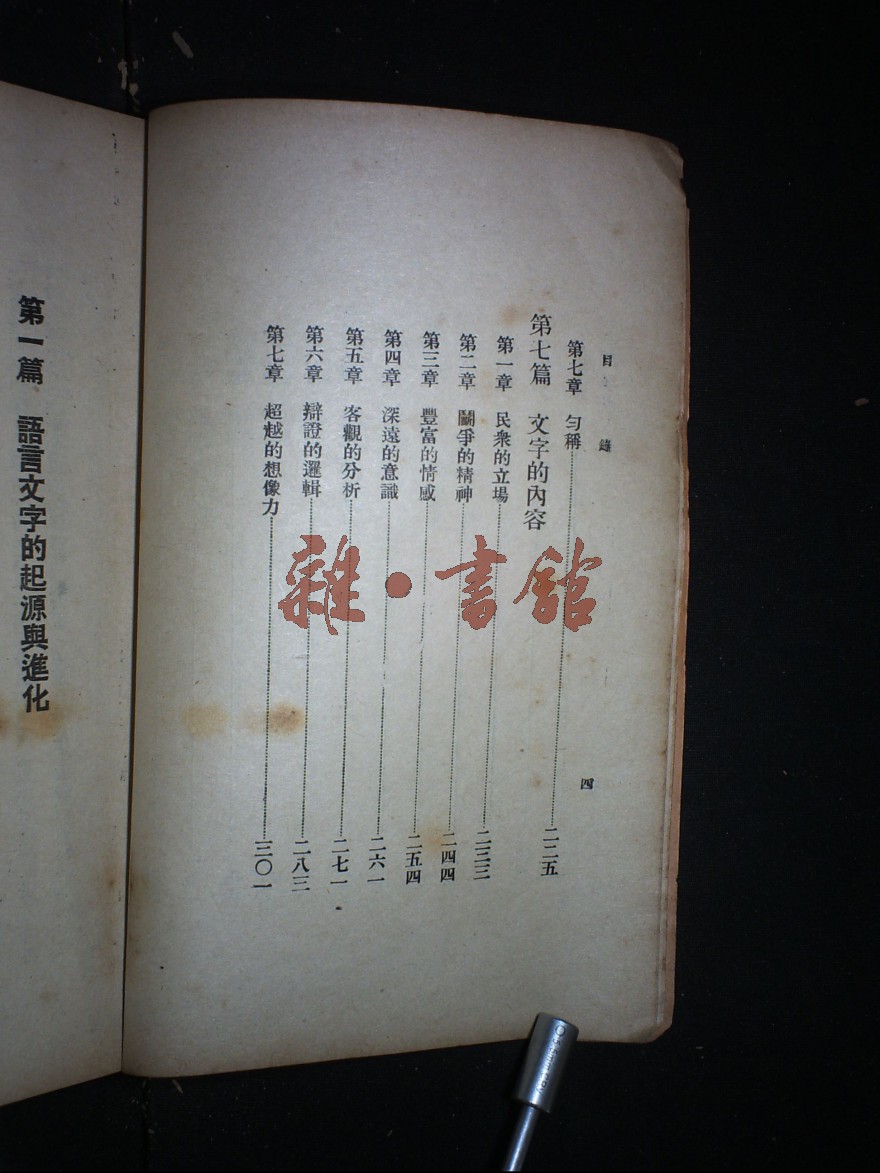 目錄
四
第七章 勻稱 二二五
第七篇 文字的內容
第一章 民衆的立場 二三三
第二章 鬭爭的精神 二四四
第三章 豐富的情感 二五四
第四章 深遠的意識 二六一
第五章 客觀的分析 二七一
第六章 辯證的邏輯 二八三
第七章 超越的想像力 三〇一
第一篇 語言文字的起源與進化
雜·書館